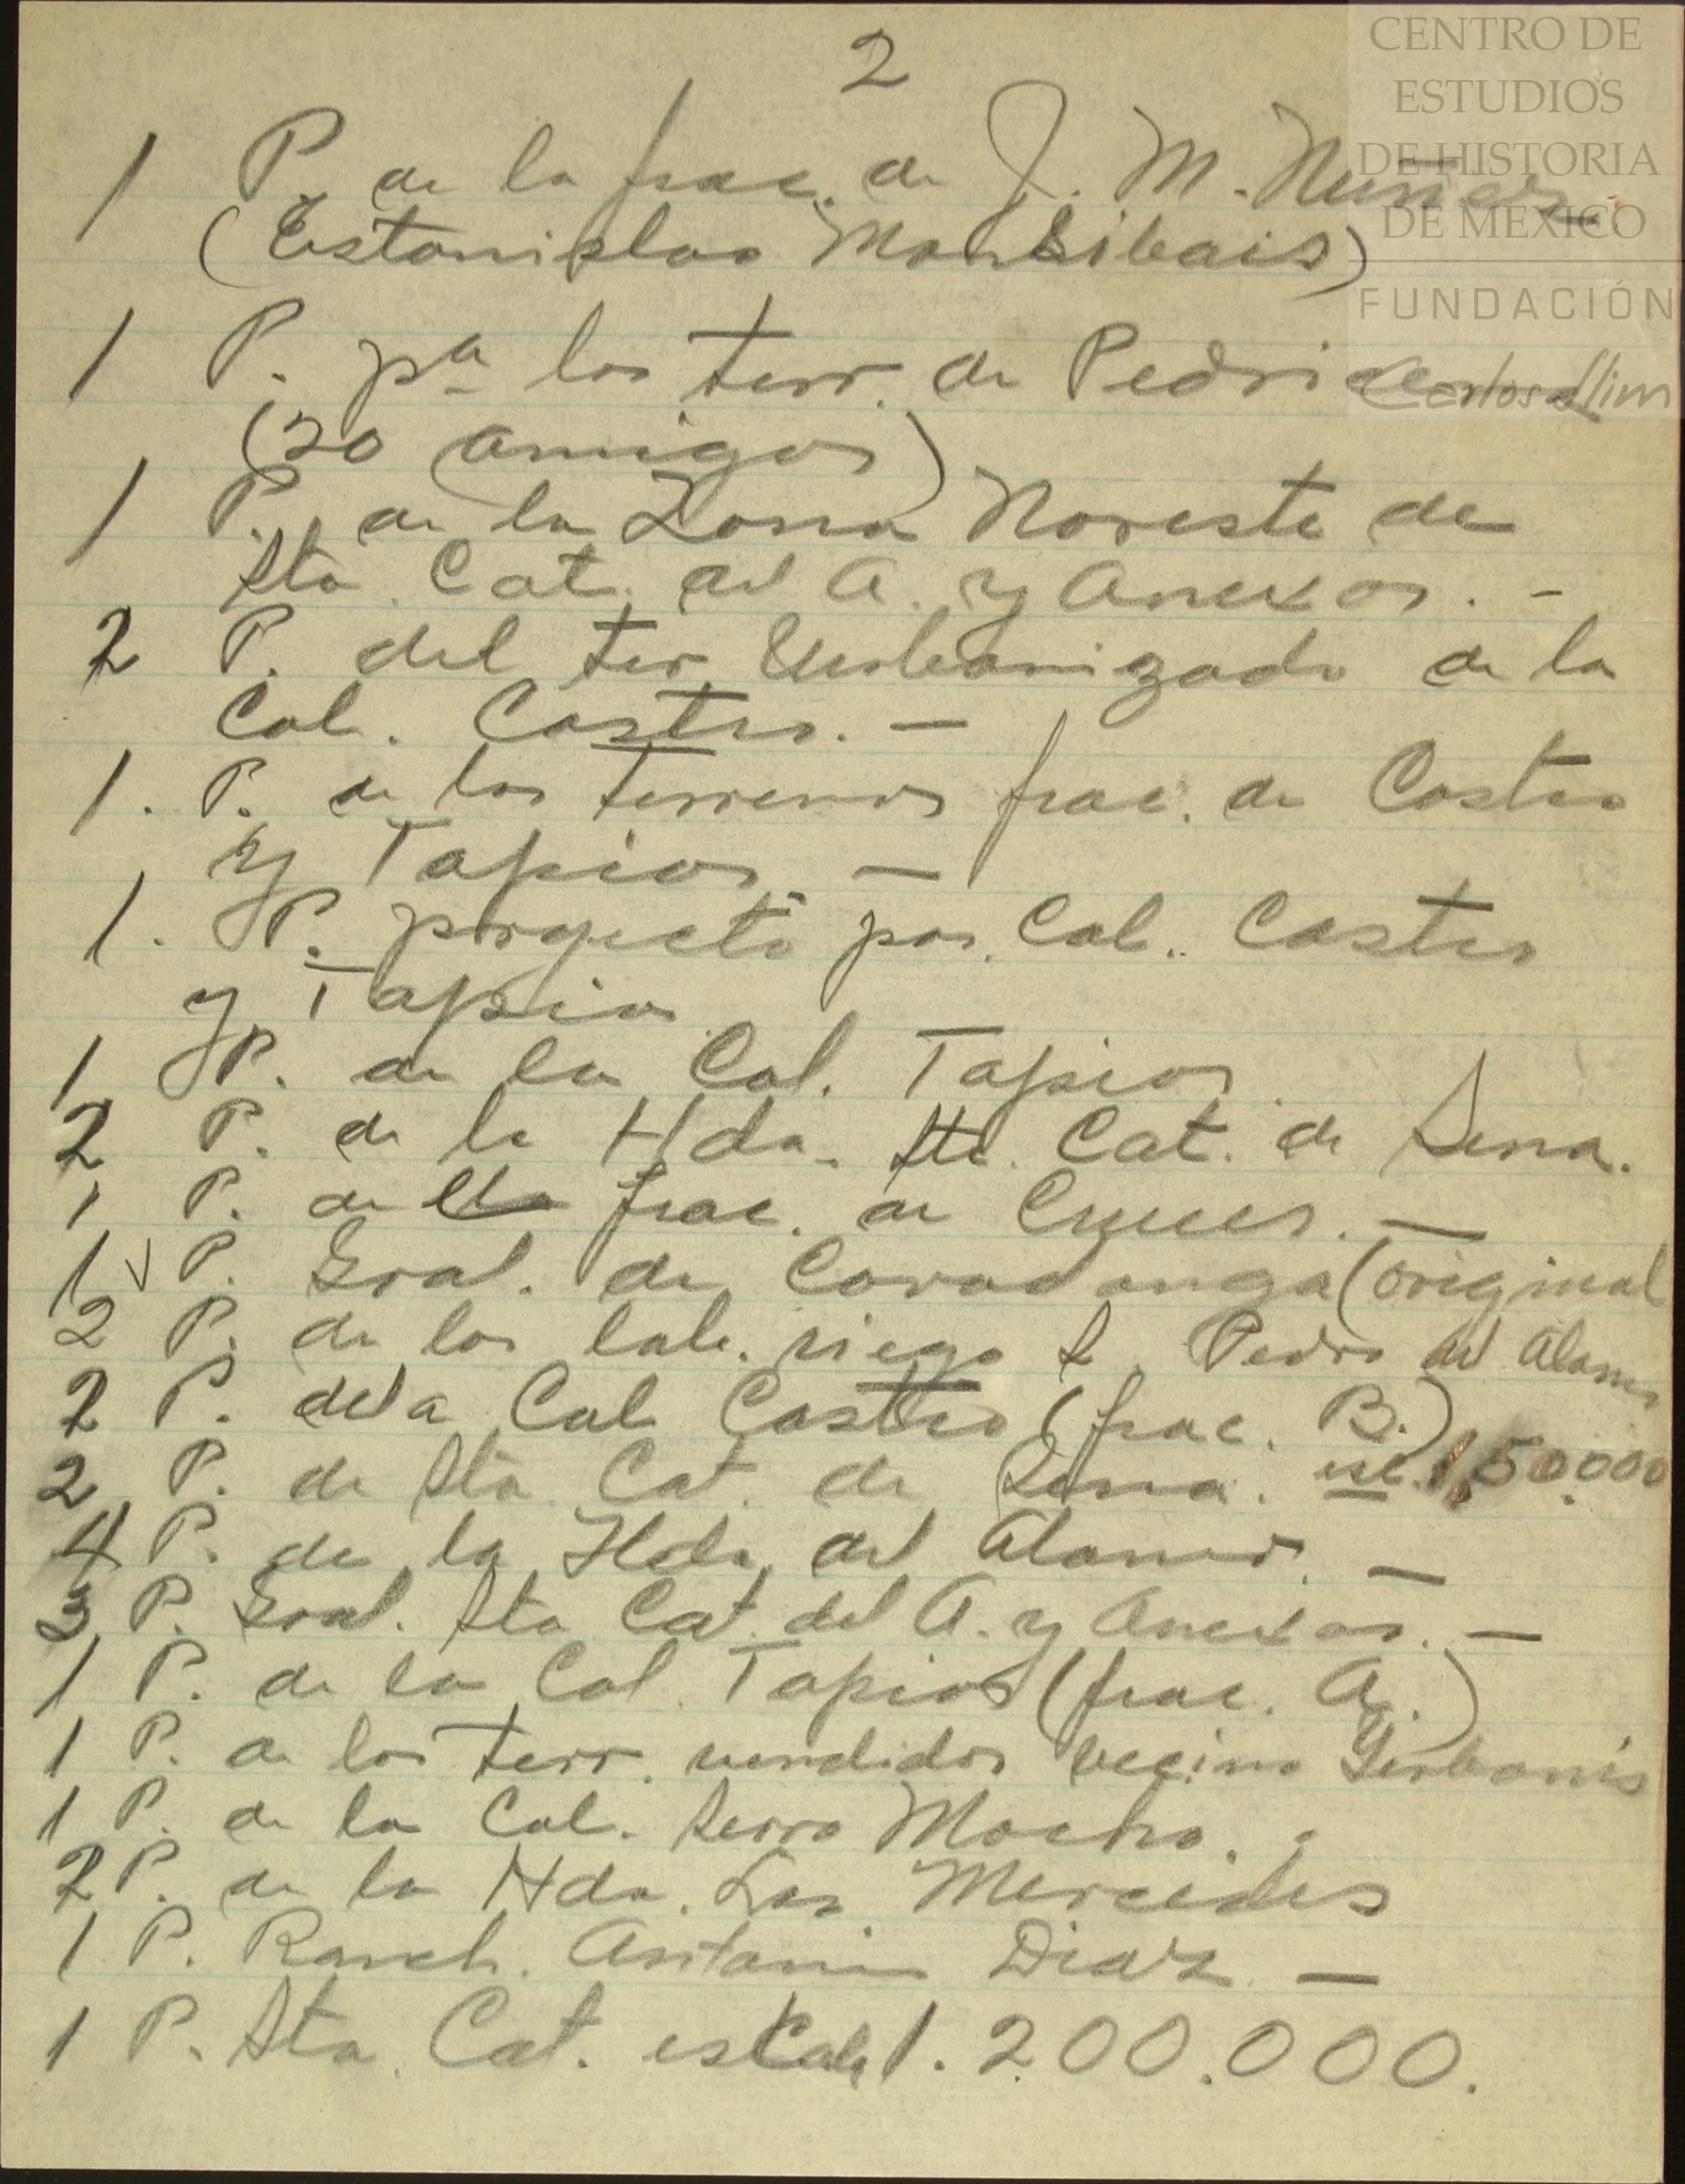 2
CENTRO DE
ESTUDIOS
DE HISTORIA
DE MEXICO
FUNDACIÓN
Carlos Slim
1 P. de la frac. de J. M. Nuñez.
(Estanislao Monsibais)
1 P. pª los terr. de Pedriceña
(20 amigos)
1 P. de la Zona Noreste de
Sta. Cat. del A. y Anexos. -
2 P. del ter. Urbanizado de la
Col. Castro. -
1. P. de los terrenos frac. de Castro
y Tapias. -
1. P. proyecto por Col. Castro
y Tapias
1 P. de la Col. Tapias.
2 P. de la Hda. Sta. Cat. de Sena.
1 P. de frac. de Cruces. -
1 P. Gral. de Covadonga (original
2 P. de los lab. riego S. Pedro del Alamo
2 P. de la Col Castro (frac. B.)
2 P. de Sta Cat. de Sena. esc. 1,50.000
4 P. de la Hda. del Alamo. -
3 P. Gral. Sta Cat. del A. y Anexos. -
1 P. de la Col. Tapias (frac. A.)
1 P. de los terr. vendidos vecino
1 P. de la Col. Serro Mocho.
2 P. de la Hda. Las Mercedes
1 P. Ranch. Antonio Diaz -
1 P. Sta. Cat. escala 1. 200.000.